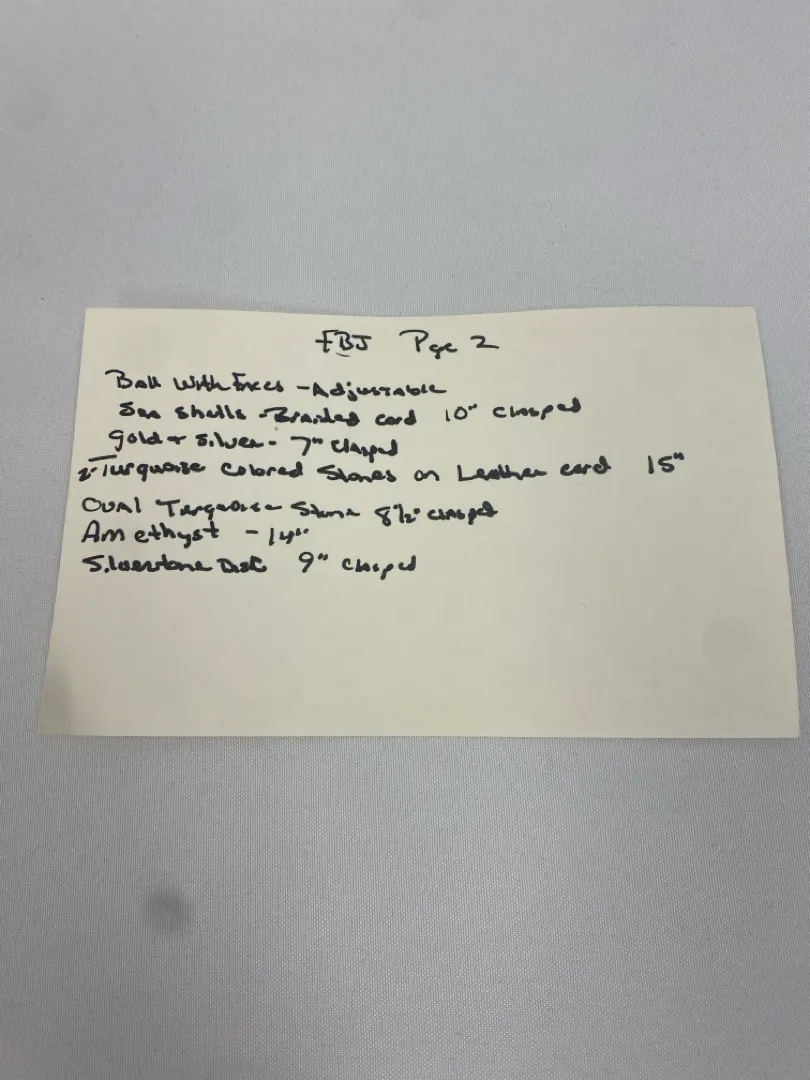 FBJ Pge 2
Ball with Faces - Adjustable
Sea Shells - Braided cord 10" clasped
Gold + Silver - 7" clasped
2-Turquoise Colored Stones on Leather cord 15"
Oval Turquoise Stone 8½" clasped
Amethyst - 14"
Silverstone Disk 9" clasped